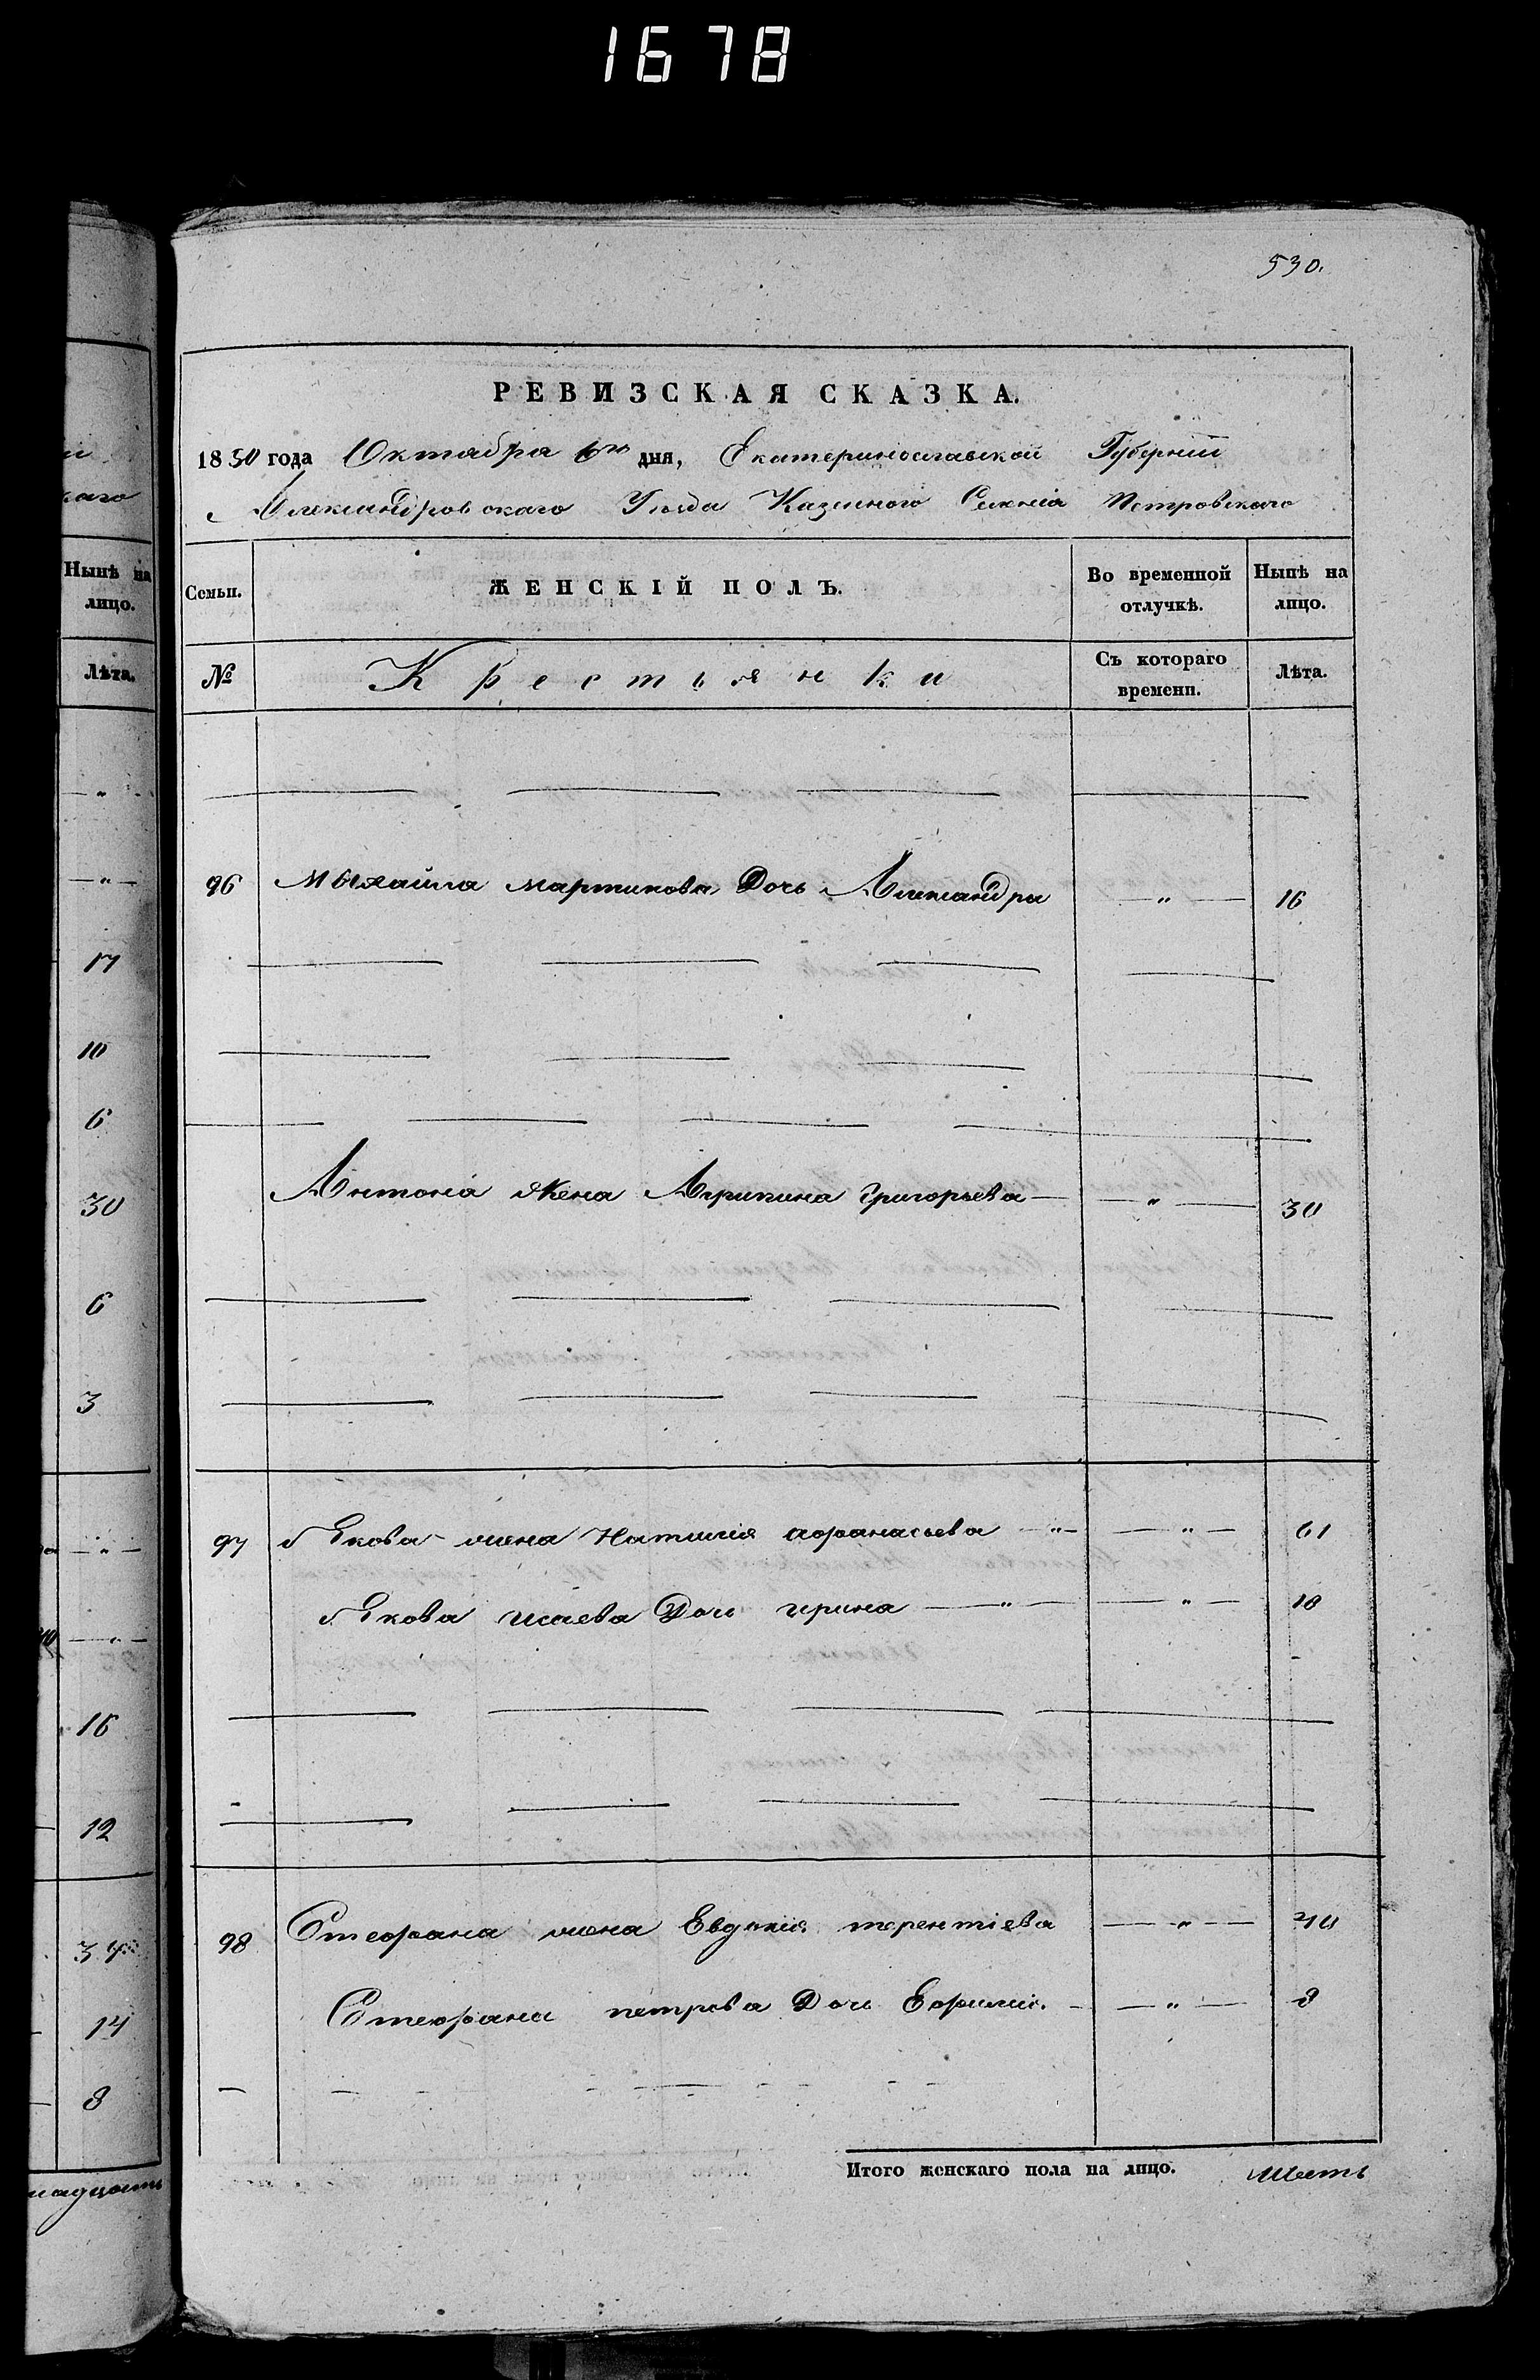 1678
530.
и
каго
Нынѣ на
лицо.
Лѣта.
— „ —
— „ —
17
10
6
30
6
3
— „ —
— „ —
16
12
14
8
надцать
РЕВИЗСКАЯ СКАЗКА.
1850 года Октября 6го дня, Екатеринославской Губерніи
Александровскаго Уѣзда Казенного Селенія Петровскаго
Семьи. ЖЕНСКІЙ ПОЛЪ. Во временной отлучкѣ. Нынѣ на лицо.
№ Крестьянки Съ котораго времени. Лѣта.
96 Михайла мартинова Дочь Александра — „ — 16
Антона Жена Агрипина Григорьева — — „ — 30
97 Якова жена Наталия афанасьева — „ — — „ — 61
Якова исаева Дочь ирина — „ — — „ — 18
98 Стефана жена Евдокия терентіева — „ — 40
Стефана петрова Дочь Ефимия — — „ — 8
Итого женскаго пола на лицо. шесть